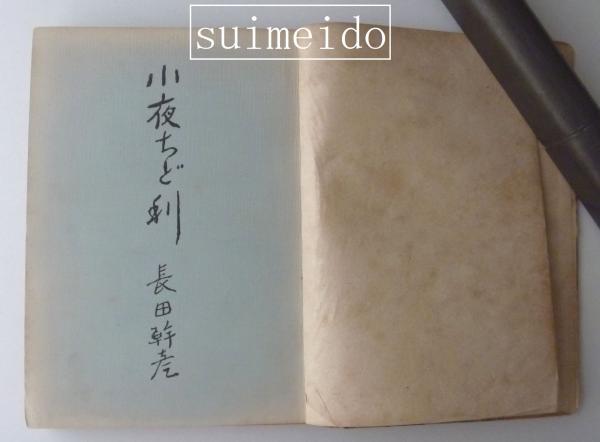 suimeido
小夜ちど利
長田幹彦